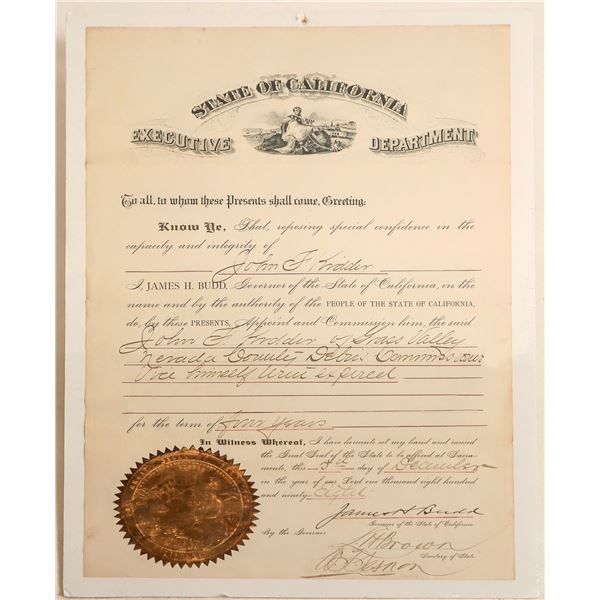 STATE OF CALIFORNIA
EXECUTIVE DEPARTMENT
To all, to whom these Presents shall come, Greeting:
Know Ye, That, reposing special confidence in the
capacity and integrity of
John F Kidder
I, JAMES H. BUDD, Governor of the State of California, in the
name and by the authority of the PEOPLE OF THE STATE OF CALIFORNIA,
do, by these PRESENTS, Appoint and Commission him, the said
John F. Kidder of Grass Valley
Nevada County Debris Commissioner
Vice himself term expired
for the term of four years
In Witness Whereof, I have hereunto set my hand and caused
the Great Seal of the State to be affixed at Sacra-
mento, this 3rd day of December
in the year of our Lord one thousand eight hundred
and ninety-eight
James H Budd
Governor of the State of California
By the Governor
Brown
Secretary of State